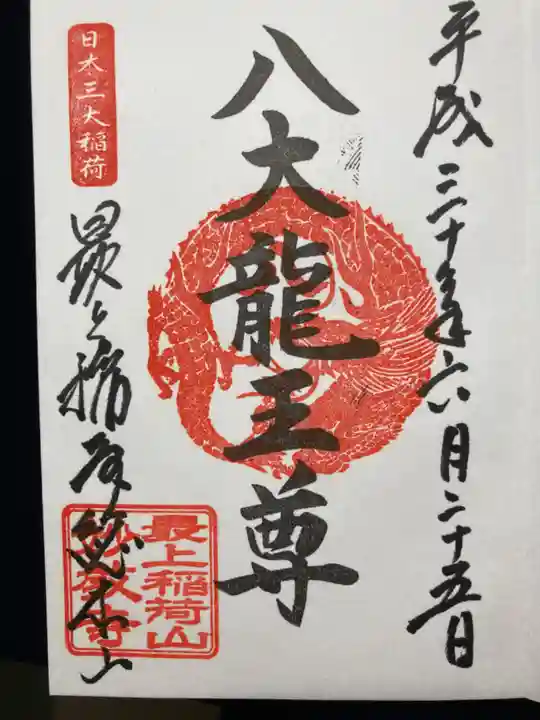 平成三十年六月二十五日
八大龍王尊
日本三大稲荷
最上稲荷総本山
最上稲荷山
妙教寺